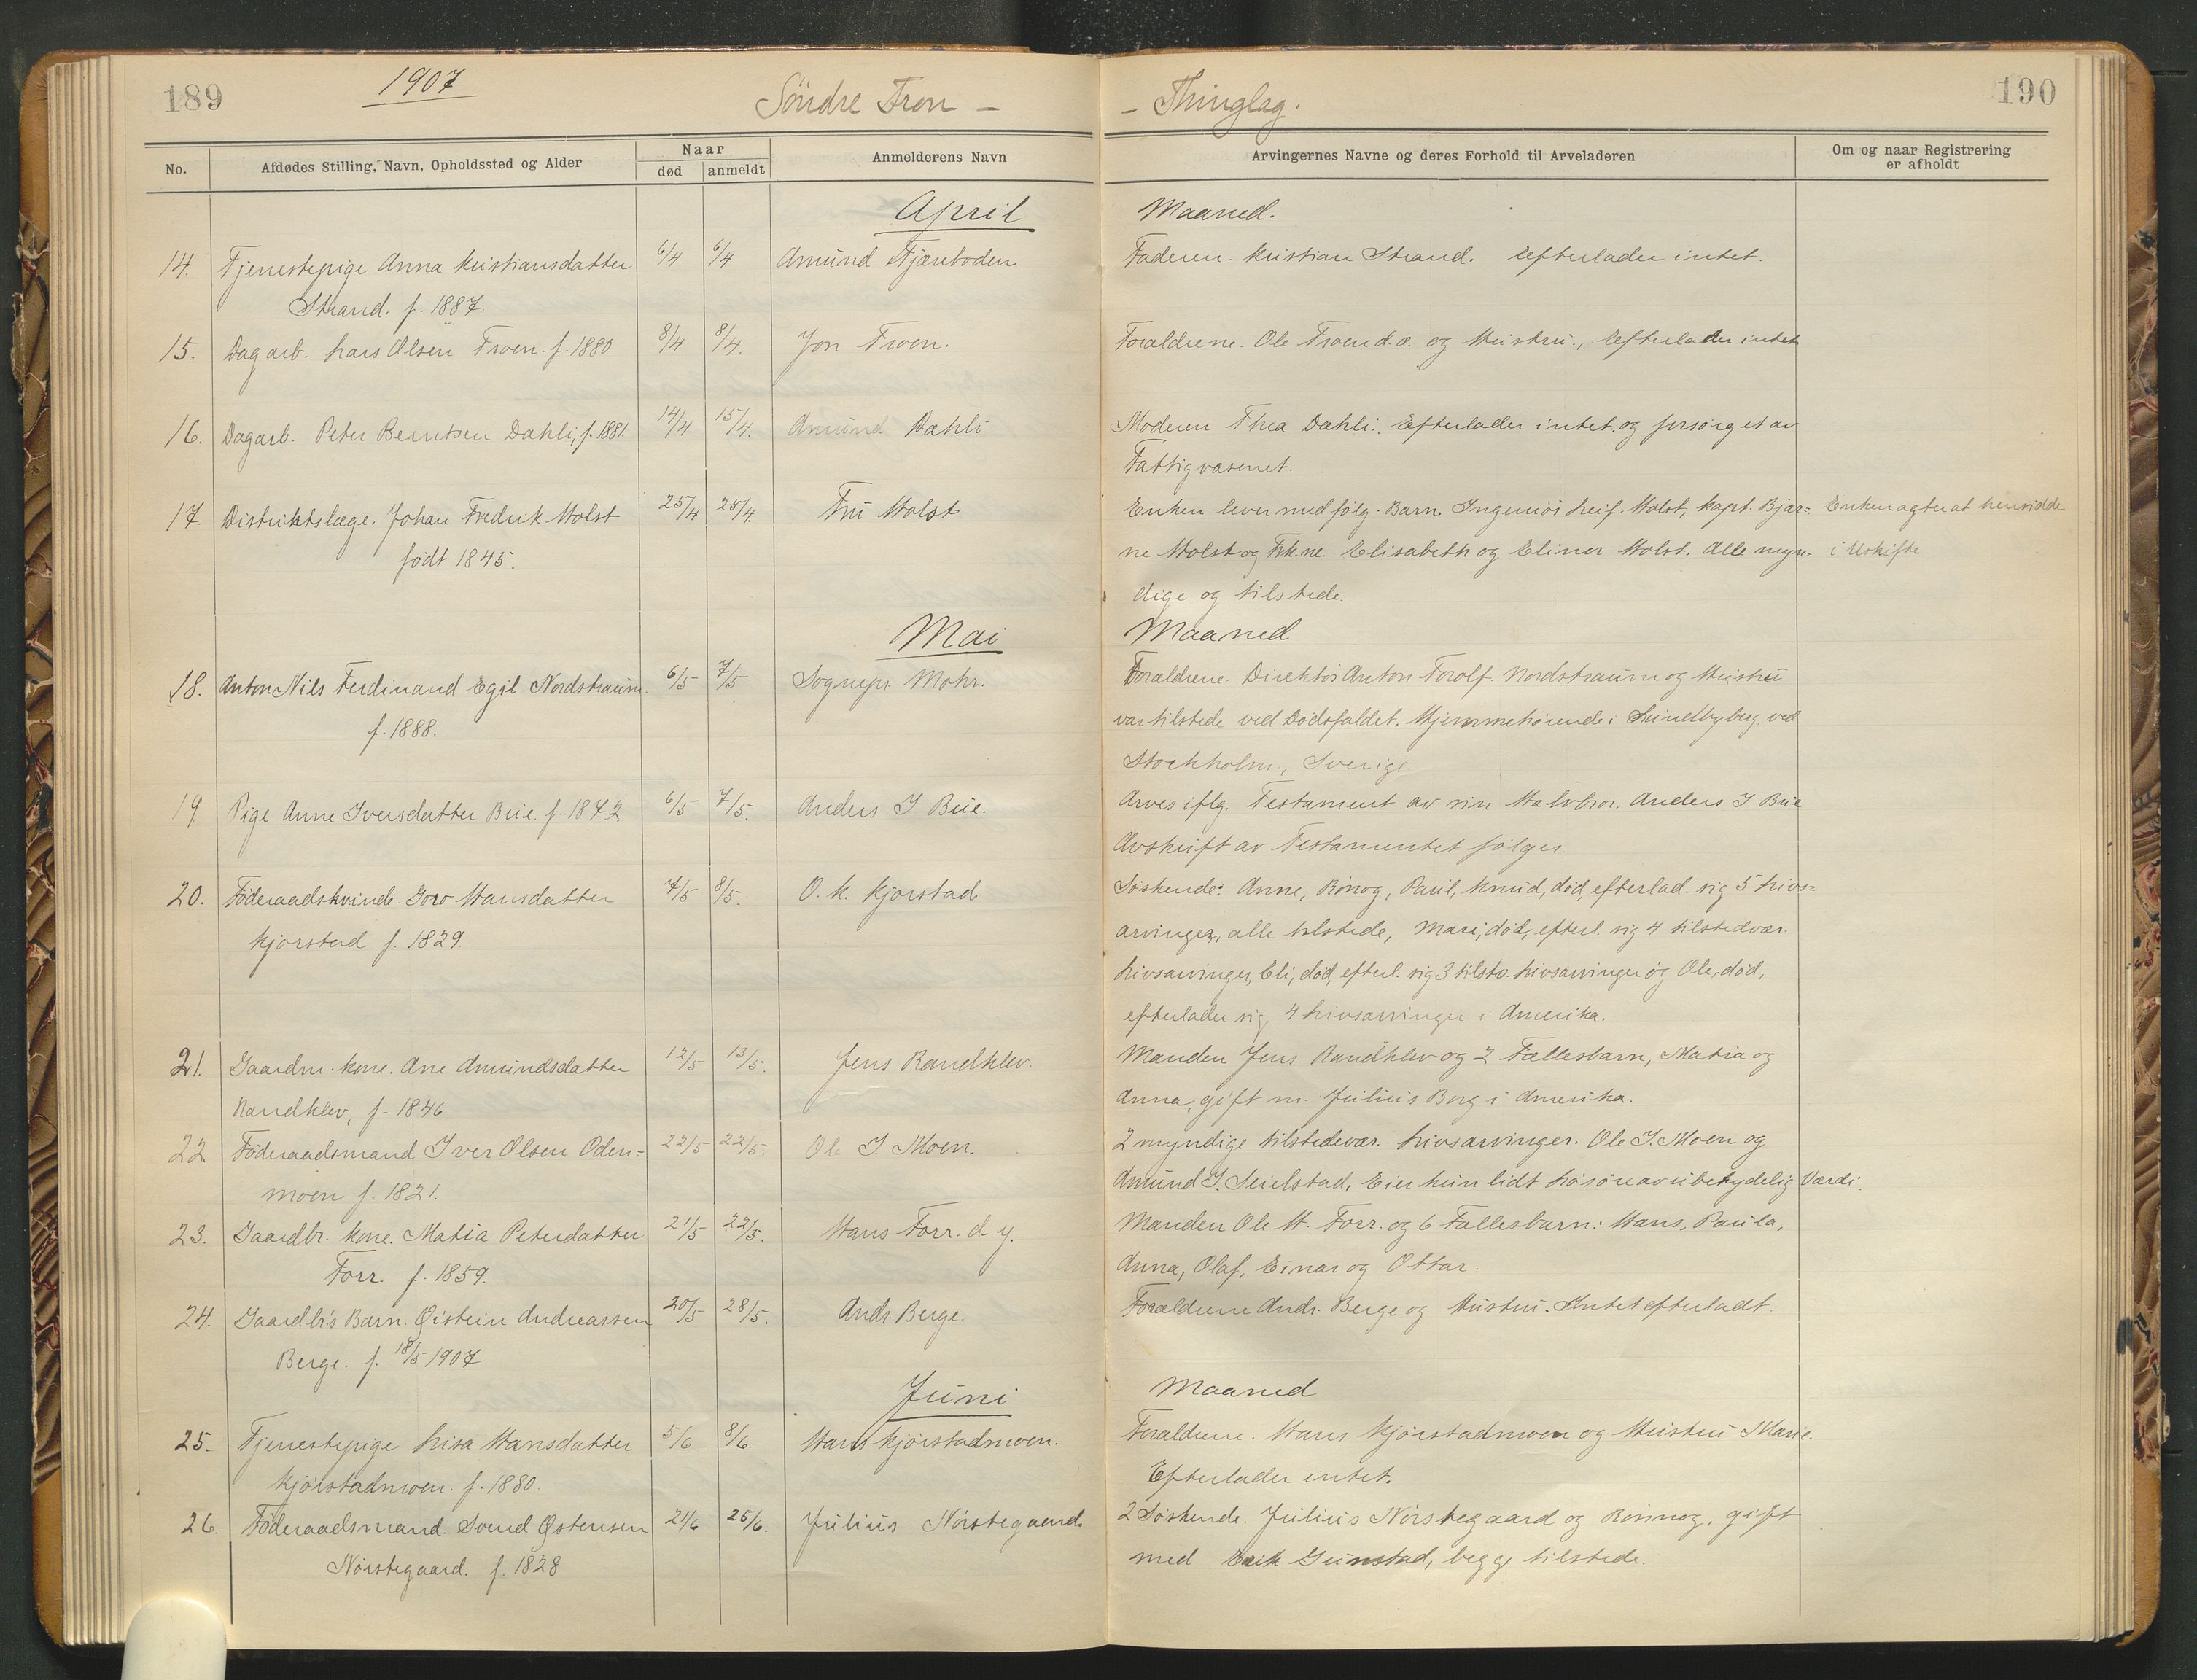 189
1907
Söndre Fron -
- Thinglag.
190
No.
Afdødes Stilling, Navn, Opholdssted og Alder
Naar
død
anmeldt
Anmelderens Navn
Arvingernes Navne og deres Forhold til Arveladeren
Om og naar Registrering
er afholdt
April
Maaned.
14. Tjenestepige Anna Kristiansdatter 6/4 6/4 Amund Fjæreboden Faderen. Kristian Strand. Efterlader intet.
Strand. f. 1887.
15. Dagarb. Lars Olsen Froen. f. 1880 8/4 8/4. Jon Froen. Forældrene. Ole Froen d.æ. og Hustru., Efterlader intet
16. Dagarb. Peter Berntsen Dahli, f. 1881. 14/4 15/4. Amund Dæhli Moderen Thea Dæhli. Efterlader intet og forsørget av
Fattigvæsenet.
17. Distriktslæge. Johan Fredrik Holst 25/4 25/4. Fru Holst Enken lever med følg. Barn. Ingeniör Leif Holst, kapt. Bjar= Enken agter at hensidde
født 1845. ne Holst og Frkne. Elisabeth og Elinor Holst. Alle myn= i Uskifte
dige og tilstede.
Mai
Maaned
18. Anton Nils Ferdinand Egil Nordstraum 6/5 7/5 Sognepr. Mohr. Forældrene. Direktör Anton Torolf Nordstraum og Hustru
f. 1888. var tilstede ved Dødsfaldet. Hjemmehörende i Sundbyberg ved
Stockholm., Sverige.
19 Pige Anne Iversdatter Bue. f. 1842 6/5 7/5. Anders I. Bue. Arves iflg. Testament av sin Halvbror. Anders I Bue
Avskrift av Testamentet følger.
20. Føderaadskvinde Goro Hansdatter 7/5 8/5. O. K. Kjorstad Søskende: Anne, Rönog, Paul, Knud, död, efterlad. sig 5 Livs=
Kjorstad f. 1829. arvinger, alle tilstede, Mari, död, efterl. sig 4 tilstedvær.
Livsarvinger, Eli, död, efterl. sig 3 tilstv. Livsarvinger og Ole, død,
efterlader sig 4 Livsarvinger i Amerika.
21. Gaardm. kone. Ane Amundsdatter 12/5 13/5. Jens Randklev. Manden Jens Randklev og 2 Fællesbarn, Matia og
Randklev, f. 1846 Anna, gift m. Julius Borg i Amerika.
22. Føderaadsmand Iver Olsen Oden= 22/5 22/5. Ole I. Moen. 2 myndige tilstedevær. Livsarvinger. Ole I. Moen og
moen f. 1821. Amund I. Seielstad. Eier kun lidt Løsøre av ubetydelig Værdi.
23. Gaardbr. kone. Matia Petersdatter 21/5 22/5. Hans Forr. d. y. Manden Ole H. Forr. og 6 Fællesbarn: Hans, Paula,
Forr. f. 1859. Anna, Olaf, Einar og Ottar.
24. Gaardbr's Barn. Øistein Andreassen 20/5 28/5. Andr. Berge. Forældrene Andr. Berge og Hustru. Intet efterladt.
Berge. f. 18/5 1907
Juni
Maaned
25. Tjenestepige Lisa Hansdatter 5/6 8/6. Hans Kjörstadmoen. Forældrene. Hans Kjörstadmoen og Hustru Marie.
Kjörstadmoen. f. 1880. Efterlader intet.
26. Føderaadsmand. Svend Østensen 21/6 25/6. Julius Nörstegaard 2 Søskende. Julius Nörstegaard og Rönnog, gift
Nörstegaard. f. 1828 med Erik Gunstad, begge tilstede.